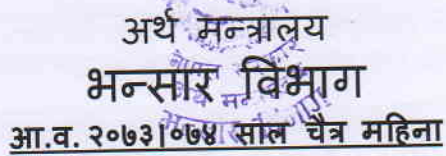 अर्थ मन्त्रालय
भन्सार विभाग
आ.व. २०७३|०७४ साल चैत्र महिना